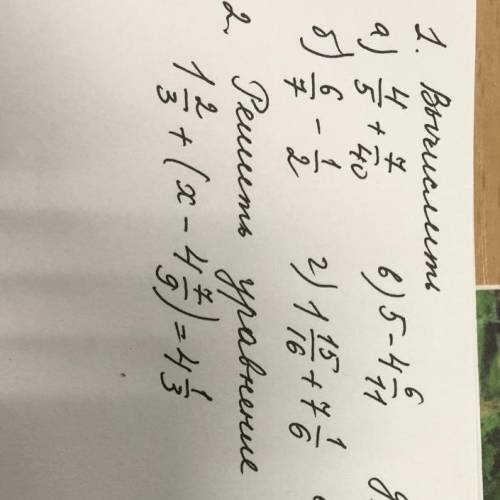 1. Вычислить
а) 4/5 + 7/40 в) 5 - 4 6/11
б) 6/7 - 1/2 г) 1 15/16 + 7 1/6
2. Решить уравнение
1 2/3 + (x - 4 7/9) = 4 1/3